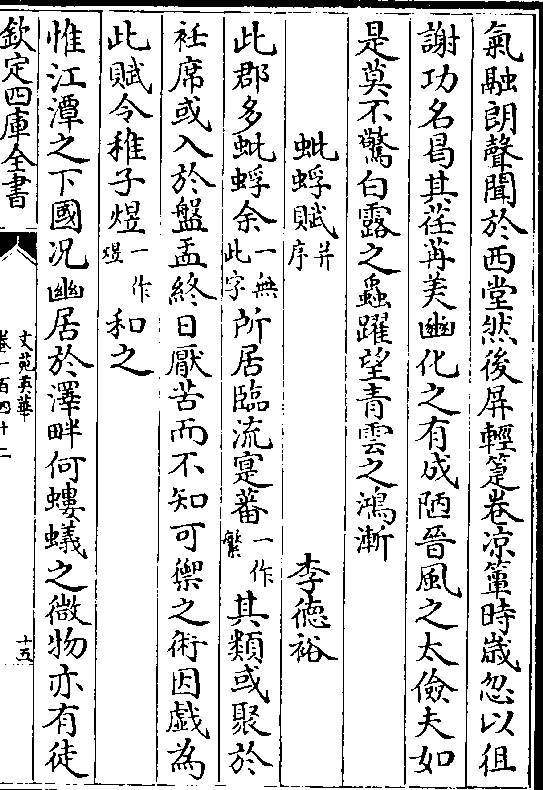 氣融朗聲聞於西堂然後屏輕箑卷凉簟時歲忽以徂
謝功名曷其荏苒美幽化之有成陋晉風之太儉夫如
是莫不驚白露之蟲躍望青雲之鴻漸
蚍蜉賦并序 李德裕
此郡多蚍蜉余一無此字所居臨流寔蕃一作繁其類或聚於
袵席或入於盤盂終日厭苦而不知可禦之術因戲為
此賦令稚子熤一作煜和之
惟江潭之下國况幽居於澤畔何螻蟻之微物亦有徒
欽定四庫全書
文苑英華
卷一百四十二
十五